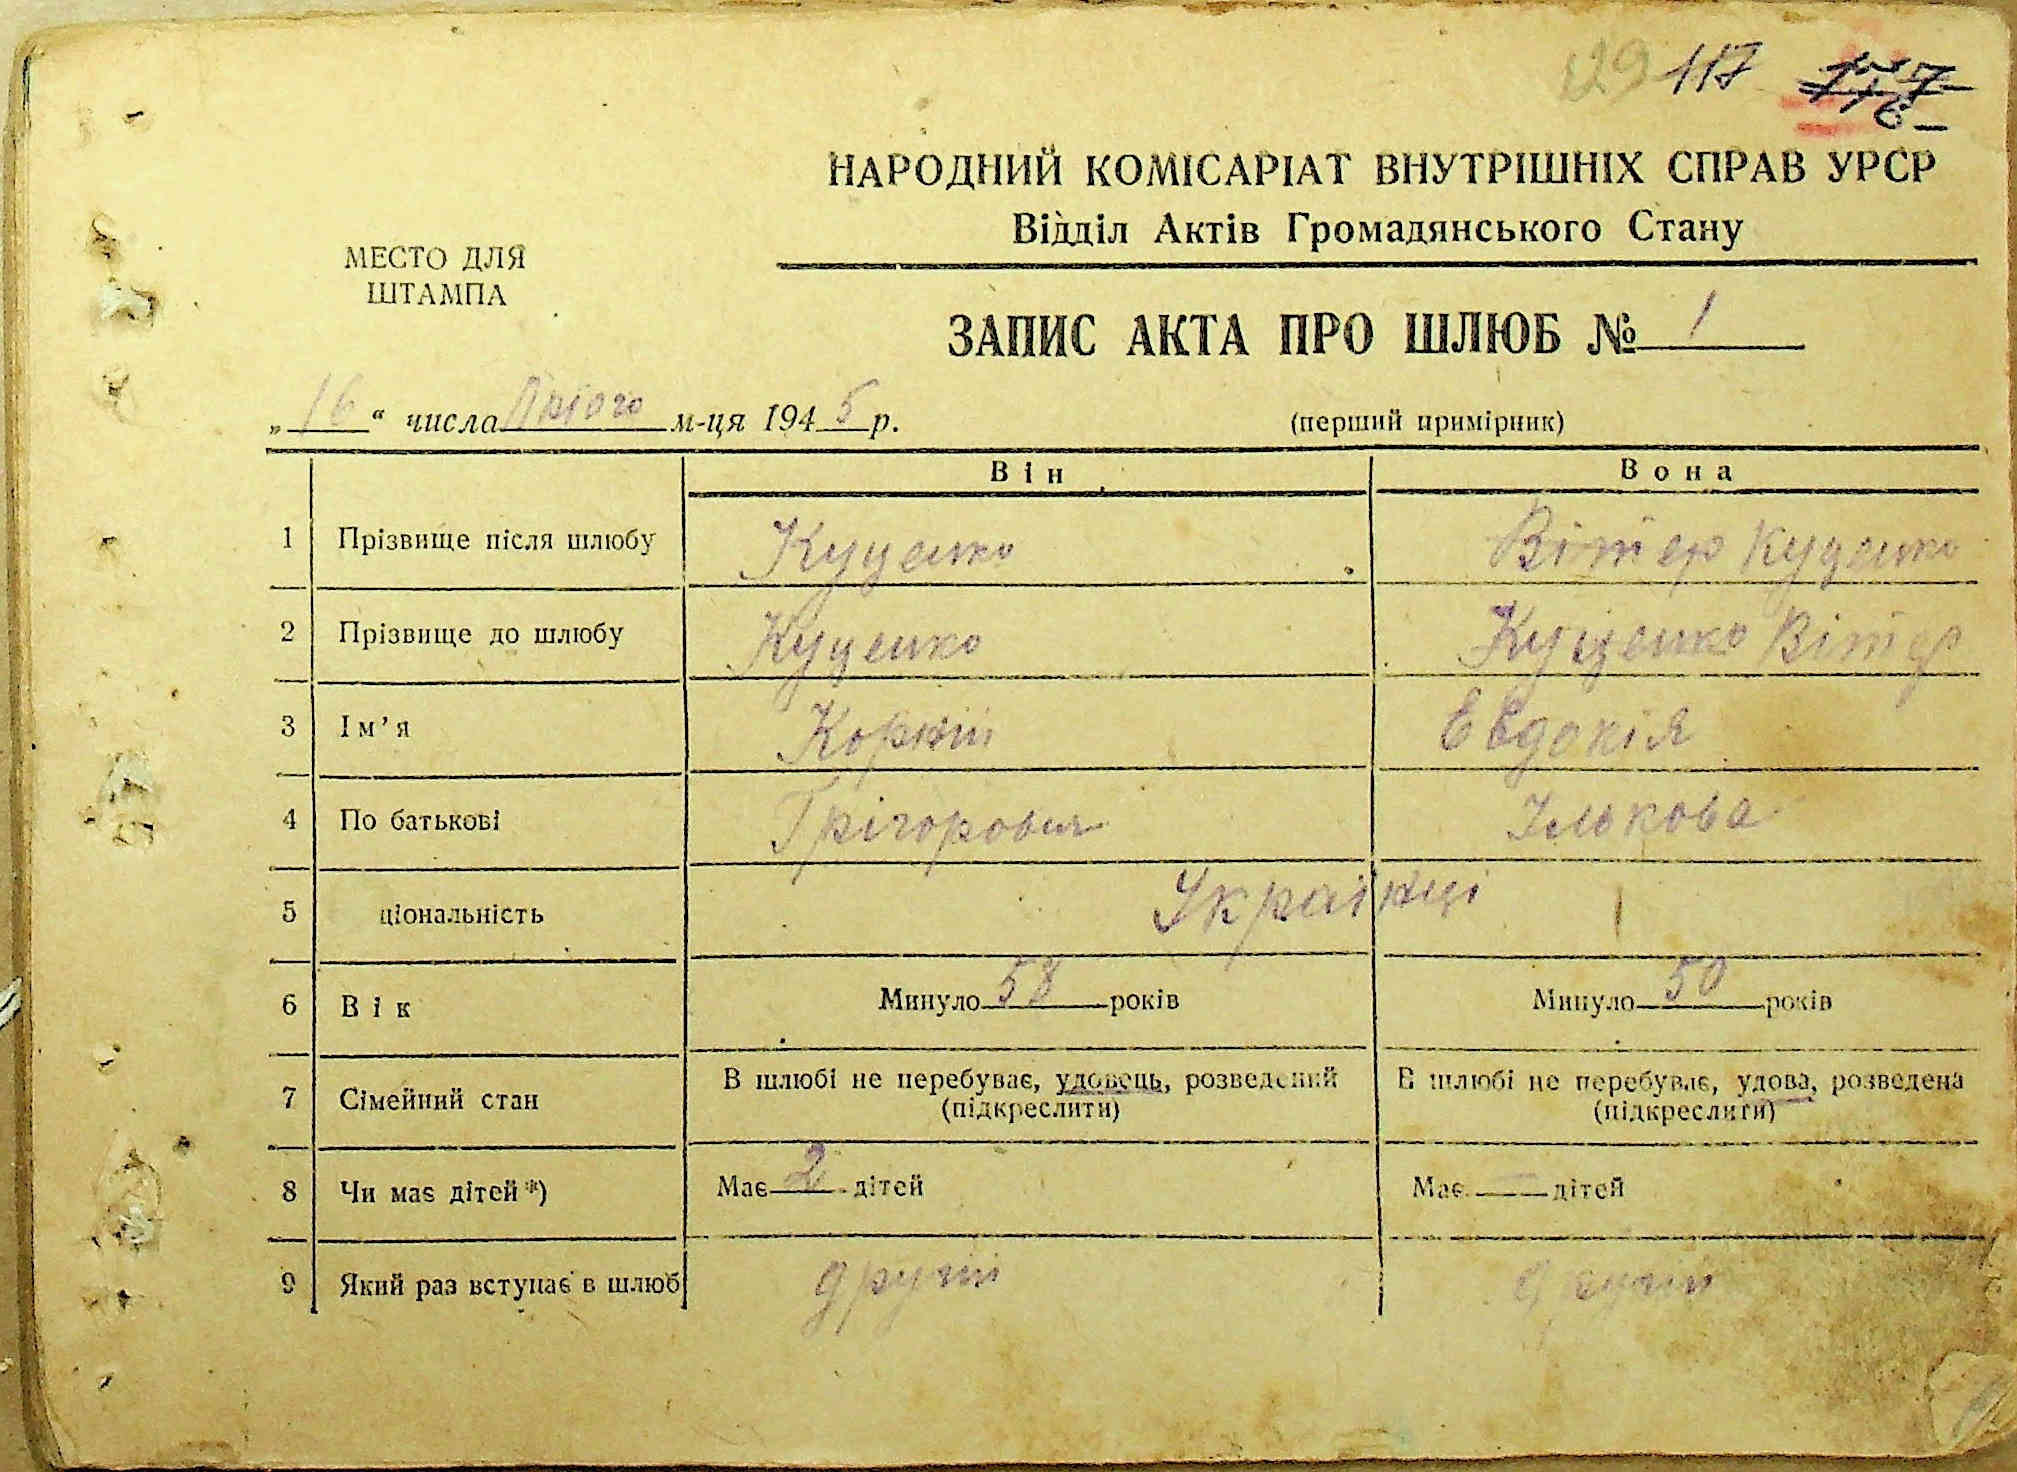 129 117
НАРОДНИЙ КОМІСАРІАТ ВНУТРІШНІХ СПРАВ УРСР
Відділ Актів Громадянського Стану
МЕСТО ДЛЯ
ШТАМПА
ЗАПИС АКТА ПРО ШЛЮБ № 1
„16“ числа Лютого м-ця 1945 р.
(перший примірник)
Він Вона
1 Прізвище після шлюбу Куценко Вітер Куценко
2 Прізвище до шлюбу Куценко Куценко Вітер
3 Ім’я Корній Евдокія
4 По батькові Грігорович Ількова
5 ціональність Українці
6 Вік Минуло 58 років Минуло 50 років
7 Сімейний стан В шлюбі не перебуває, удовець, розведений В шлюбі не перебуває, удова, розведена
(підкреслити) (підкреслити)
8 Чи має дітей*) Має 2 дітей Має — дітей
9 Який раз вступає в шлюб другий другий